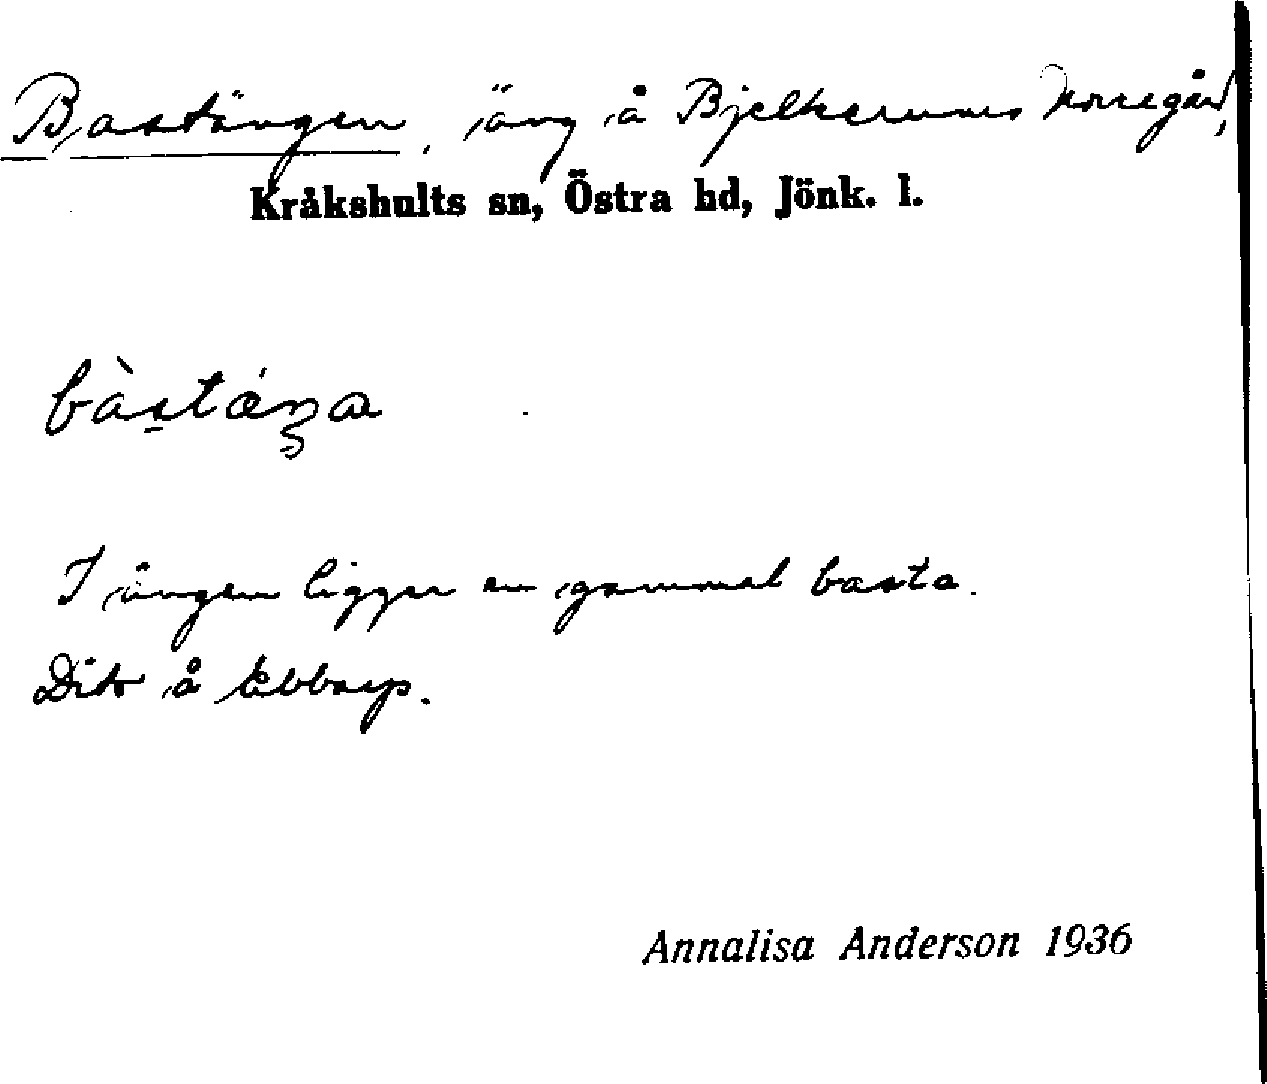 Bastängen, äng å Bjelkerums Norregård,
Kråkshults sn, Östra hd, Jönk. l.
bàstǽŋa
I ängen ligger en gammal basta.
Dito å Ebbarp.
Annalisa Anderson 1936